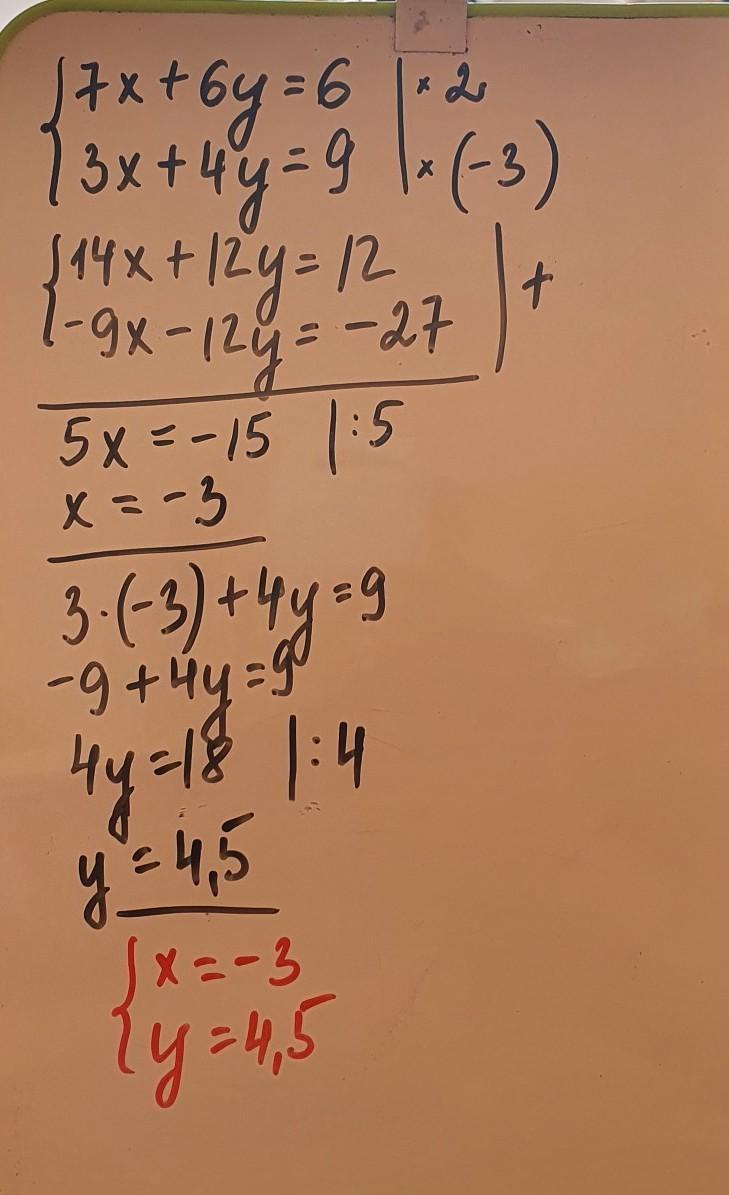 {7x+6y=6 |× 2
{3x+4y=9 |× (-3)
{14x+12y=12 | +
{-9x-12y=-27 |
5x=-15 |:5
x=-3
3·(-3)+4y=9
-9+4y=9
4y=18 |:4
y=4,5
{x=-3
{y=4,5